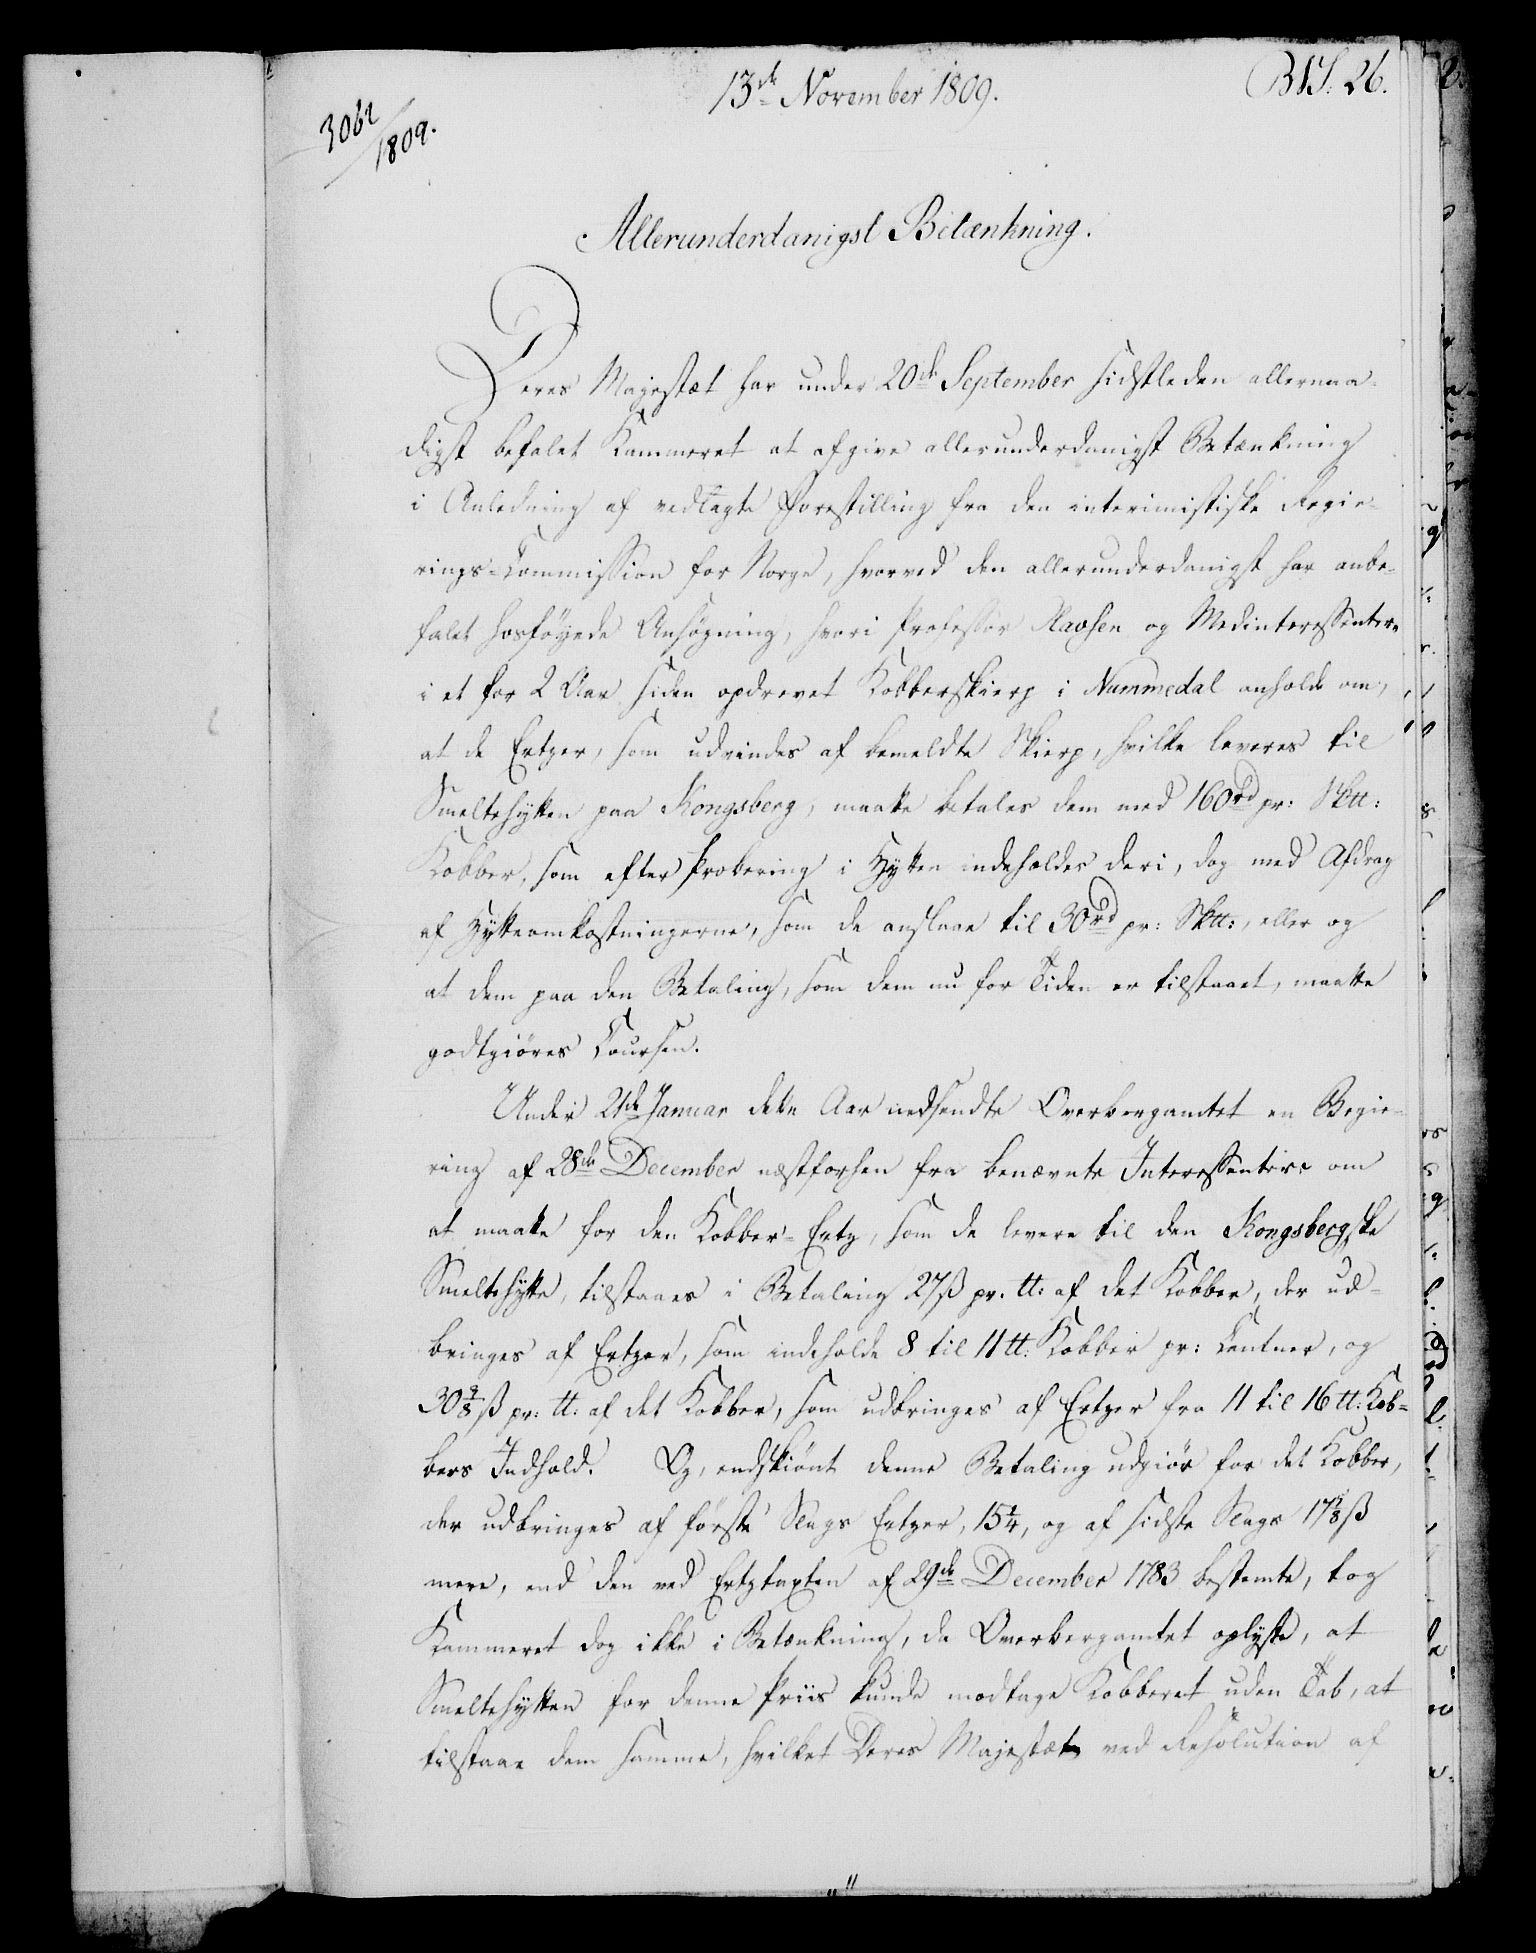 13de November 1809.
BIS: 26.
3062/1809.
Allerunderdanigst Betænkning.
Deres Majestæt har under 20de September sidstleden allernaa-
digst befalet Kammeret at afgive allerunderdanigst Betænkning
i Anledning af vedlagte Forestilling fra den interimistiske Regie-
rings-Commission for Norge, hvorved den allerunderdanigst har anbe-
falet hosföyede Ansögning, hvori Professor Olavsen og Medinteressentere
i et for 2 Aar siden opdrevet Kobberskierp i Nummedal anholde om,
at de Ertzer, som udvindes af bemeldte Skierp, hvilke leveres til
Smeltehytten paa Kongsberg, maatte betales dem med 160 rd pr: Sktt:
Kobber, som efter Probering i Hytten indeholdes deri, dog med Afdrag
af Hytteomkostningerne, som de anslaae til 30 rd pr: Sktt:, eller og
at dem paa den Betaling, som dem nu for Tiden er tilstaaet, maatte
godtgiöres Coursen.
Under 21de Januar dette Aar nedsendte Overbergamtet en Begie-
ring af 28de December næstforhen fra benævnte Interessentere om
at maatte for den Kobber-Ertz, som de levere til den Kongsbergske
Smeltehytte, tilstaaes i Betaling 27 ß pr. tt: af det Kobber, der ud-
bringes af Ertzer, som indeholde 8 til 11 tt: Kobber pr: Centner, og
30 9/8 ß pr: tt: af det Kobber, som udbringes af Ertzer fra 11 til 16 tt: Kob-
bers Indhold. Og, endskiönt denne Betaling udgiör for det Kobber,
der udbringes af förste Slags Ertzer, 15 1/4, og af sidste Slags 17 1/8 ß
mere, end den ved Ertztaxten af 29de December 1783 bestemte, tog
Kammeret dog ikke i Betænkning, da Overbergamtet oplyste, at
Smeltehytten for denne Priis kunde modtage Kobberet uden Tab, at
tilstaae dem samme, hvilket Deres Majestæt ved Resolution af